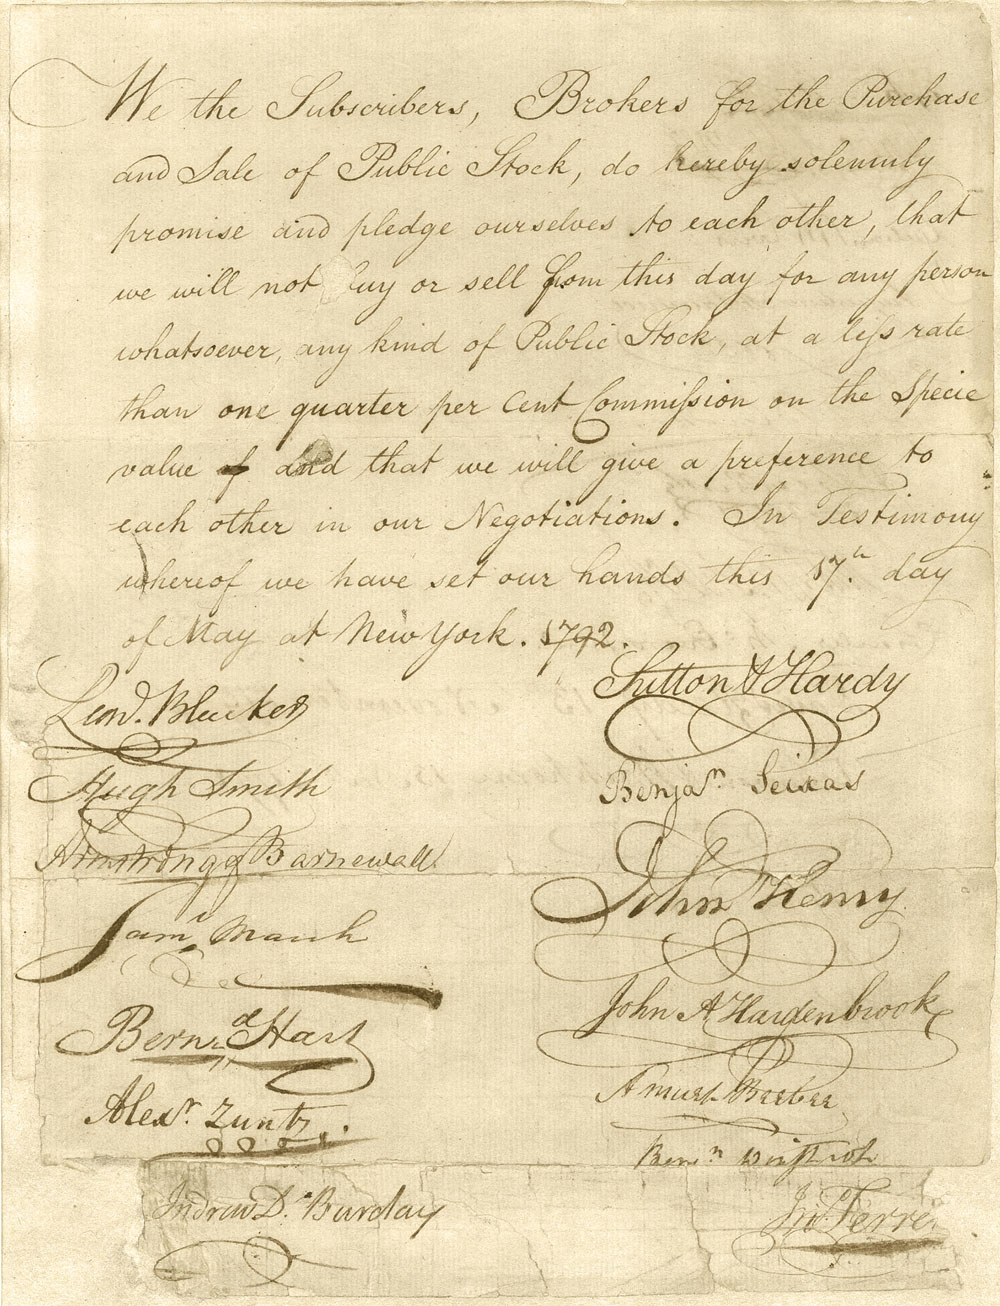 We the Subscribers, Brokers for the Purchase
and Sale of Public Stock, do hereby solemnly
promise and pledge ourselves to each other, that
we will not buy or sell from this day for any person
whatsoever, any kind of Public Stock, at a less rate
than one quarter per Cent Commission on the Specie
value of and that we will give a preference to
each other in our Negotiations. In Testimony
whereof we have set our hands this 17th. day
of May at New York. 1792.
Leond. Bleecker
Sutton & Hardy
Hugh Smith
Benjan. Seixas
Armstrong & Barnewall
John Henry
Saml. March
John A Hardenbrook
Bernd Hart
Amurt Beebee
Alexr. Zuntz
Andrew D. Barclay